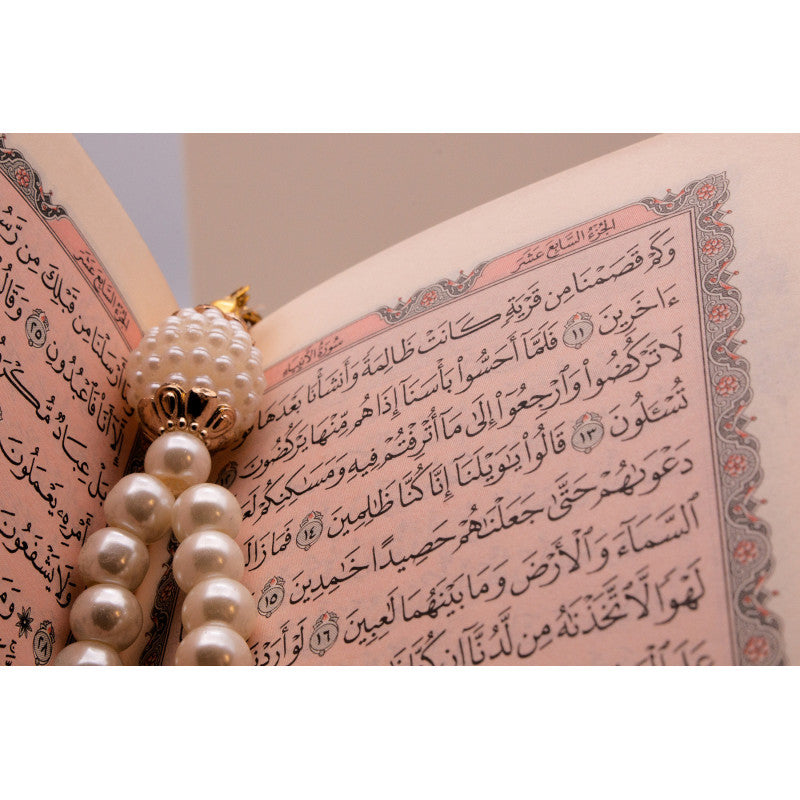 الجُزْءُ السَّابِعَ عَشَرَ
سُورَةُ الأَنبِيَاءِ
وَكَمْ قَصَمْنَا مِن قَرْيَةٍ كَانَتْ ظَالِمَةً وَأَنشَأْنَا بَعْدَهَا
ءَاخَرِينَ ١١ فَلَمَّآ أَحَسُّوا۟ بَأْسَنَآ إِذَا هُم مِّنْهَا يَرْكُضُونَ ١٢
لَا تَرْكُضُوا۟ وَٱرْجِعُوٓا۟ إِلَىٰ مَآ أُتْرِفْتُمْ فِيهِ وَمَسَٰكِنِكُمْ
تُسْـَٔلُونَ ١٣ قَالُوا۟ يَٰوَيْلَنَآ إِنَّا كُنَّا ظَٰلِمِينَ ١٤ فَمَا زَالَت
دَعْوَىٰهُمْ حَتَّىٰ جَعَلْنَٰهُمْ حَصِيدًا خَٰمِدِينَ ١٥
ٱلسَّمَآءَ وَٱلْأَرْضَ وَمَا بَيْنَهُمَا لَٰعِبِينَ ١٦ لَوْ أَرَدْنَآ
لَهْوًا لَّٱتَّخَذْنَٰهُ مِن لَّدُنَّآ إِن كُنَّا
الجُزْءُ السَّابِعَ عَشَرَ
أَرْسَلْنَا مِن قَبْلِكَ مِن
إِلَّآ أَنَا۠ فَٱعْبُدُونِ ٢٥ وَقَالُوا۟
بَلْ عِبَادٌ
يَعْمَلُونَ
وَلَا يَشْفَعُونَ
٢٨